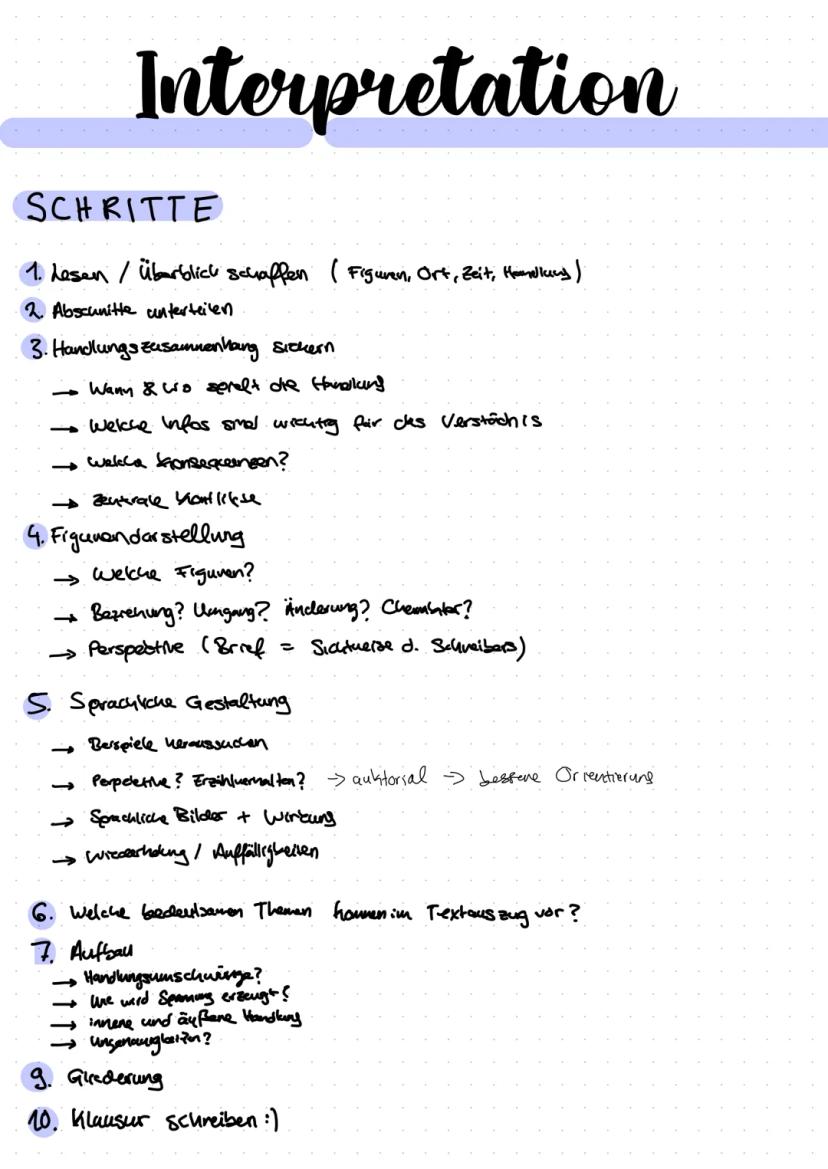 Interpretation
SCHRITTE
1. Lesen / Überblick schaffen ( Figuren, Ort, Zeit, Handlung )
2. Abschnitte unterteilen
3. Handlungszusammenhang sichern
→ Wann & wo spielt die Handlung
→ Welche Infos sind wichtig für das Verständnis
→ Welche Konsequenzen?
→ Zentrale Konflikte
4. Figurendarstellung
→ Welche Figuren?
→ Beziehung? Umgang? Änderung? Charakter?
→ Perspektive (Brief = Sichtweise d. Schreibers)
5. Sprachliche Gestaltung
→ Beispiele heraussuchen
→ Perpektive? Erzählverhalten? → auktorial → bessere Orientierung
→ Sprachliche Bilder + Wirkung
→ Wiederholung / Auffälligkeiten
6. Welche bedeutsamen Themen kommen im Textauszug vor?
7. Aufbau
→ Handlungsumschwünge?
→ Wie wird Spannung erzeugt?
→ innere und äußere Handlung
→ Ungenauigkeiten?
9. Gliederung
10. Klausur schreiben :)